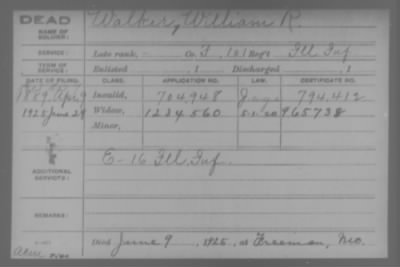 DEAD
NAME OF SOLDIER: Walker, William R.
SERVICE: Late rank, - Co. F, 101 Reg't Ill Inf
TERM OF SERVICE: Enlisted , 1 Discharged , 1
DATE OF FILING. CLASS. APPLICATION NO. LAW. CERTIFICATE NO.
1889 Apr 9 Invalid, 704,948 794,412
1925 June 29 Widow, 1234560 5.1.20 965738
Minor,
ADDITIONAL SERVICES: E-16 Ill Inf.
REMARKS:
Died June 9, 1925, at Freeman, Mo.